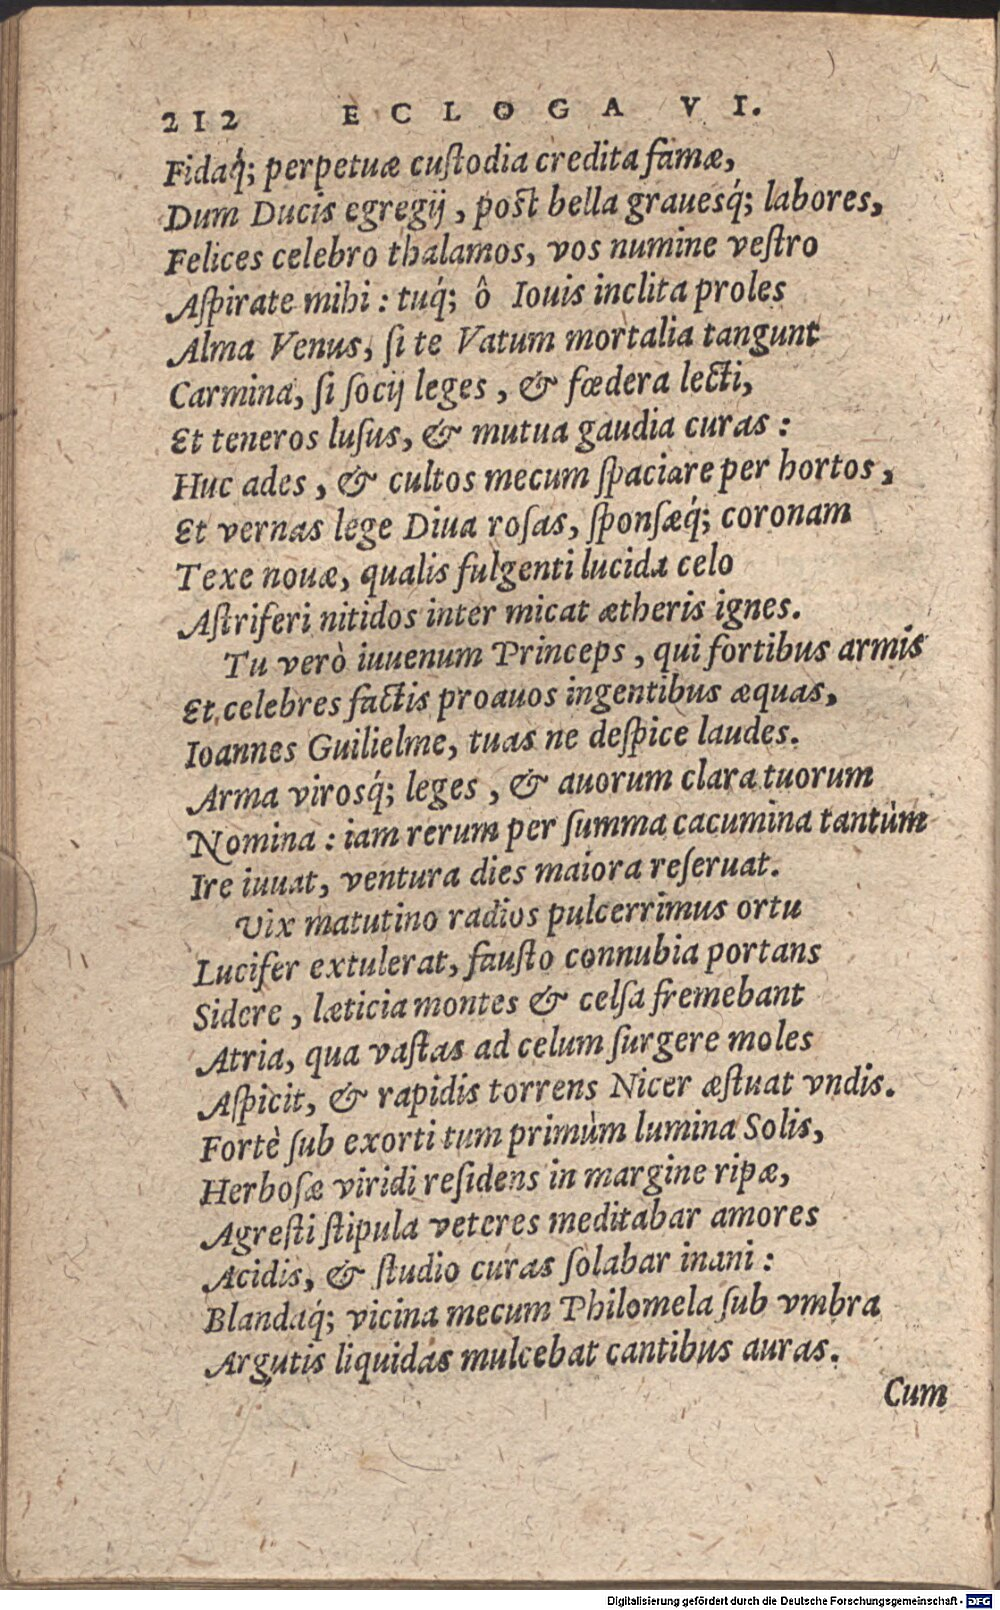 212 ECLOGA VI.
Fidaq́; perpetuæ cuſtodia credita famæ,
Dum Ducis egregij, poſt bella grauesq́; labores,
Felices celebro thalamos, vos numine veſtro
Aſpirate mihi: tuq́; ô Iouis inclita proles
Alma Venus, ſi te Vatum mortalia tangunt
Carmina, ſi ſocij leges, & fœdera lecti,
Et teneros luſus, & mutua gaudia curas:
Huc ades, & cultos mecum ſpaciare per hortos,
Et vernas lege Diua roſas, ſponſæq́; coronam
Texe nouæ, qualis fulgenti lucida celo
Aſtriferi nitidos inter micat ætheris ignes.
Tu verò iuuenum Princeps, qui fortibus armis
Et celebres factis proauos ingentibus æquas,
Ioannes Guilielme, tuas ne deſpice laudes.
Arma virosq́; leges, & auorum clara tuorum
Nomina: iam rerum per ſumma cacumina tantùm
Ire iuuat, ventura dies maiora reſeruat.
Vix matutino radios pulcerrimus ortu
Lucifer extulerat, fauſto connubia portans
Sidere, læticia montes & celſa fremebant
Atria, qua vaſtas ad celum ſurgere moles
Aſpicit, & rapidis torrens Nicer æſtuat vndis.
Fortè ſub exorti tum primùm lumina Solis,
Herboſæ viridi reſidens in margine ripæ,
Agreſti ſtipula veteres meditabar amores
Acidis, & ſtudio curas ſolabar inani:
Blandaq́; vicina mecum Philomela ſub vmbra
Argutis liquidas mulcebat cantibus auras.
Cum
Digitalisierung gefördert durch die Deutsche Forschungsgemeinschaft - DFG